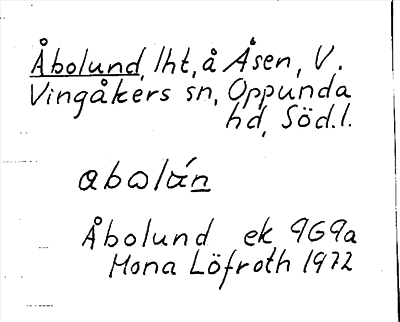 Åbolund, lht, å Åsen, V.
Vingåkers sn, Oppunda
hd, Söd.l.
abωlán
Åbolund ek 9G9a
Mona Löfroth 1972